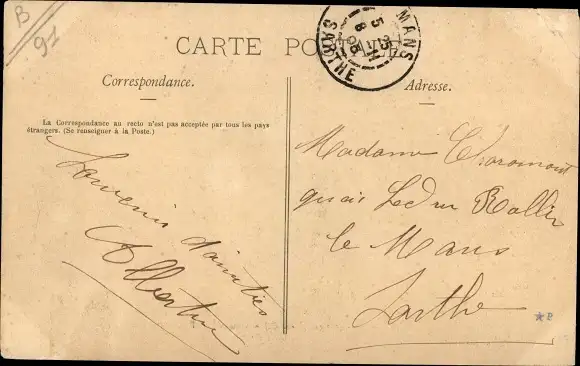 B
91
CARTE POSTALE
MANS
SARTHE
5
25
8
05
Correspondance.
Adresse.
La Correspondance au recto n'est pas acceptée par tous les pays
étrangers. (Se renseigner à la Poste.)
Souvenir d'amitiés
Albertine
Madame
quai Ledru Rollin
le Mans
Sarthe